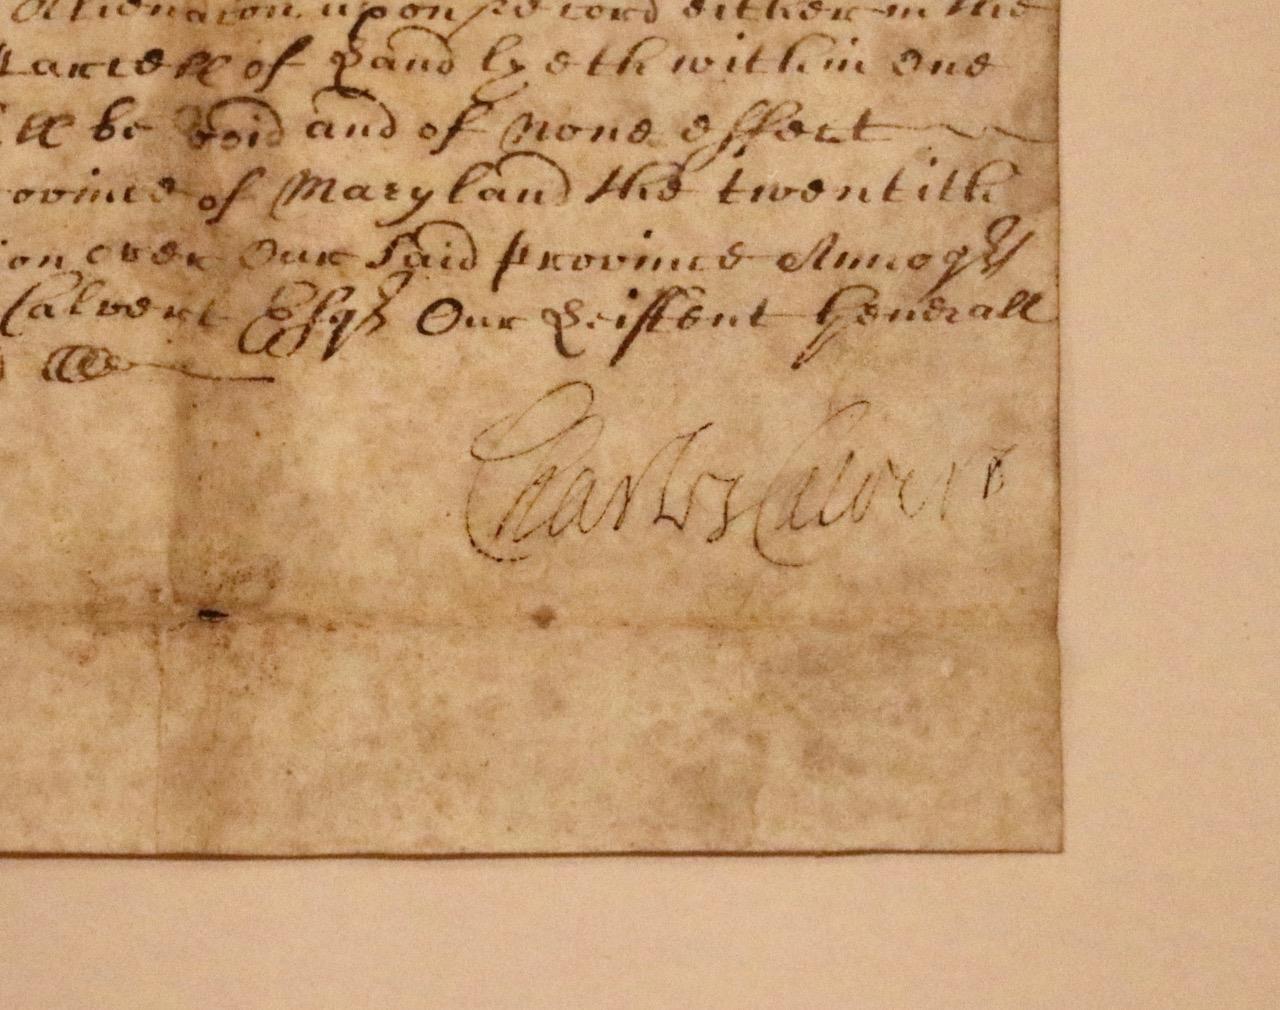 Alienacon upon Record either in the
Parcell of Land lyeth within one
ll be void and of none effect
ovince of Maryland the twentith
ion over Our Said province Annoq
Calvert Esqr Our Leiftent Generall
Charles Calvert